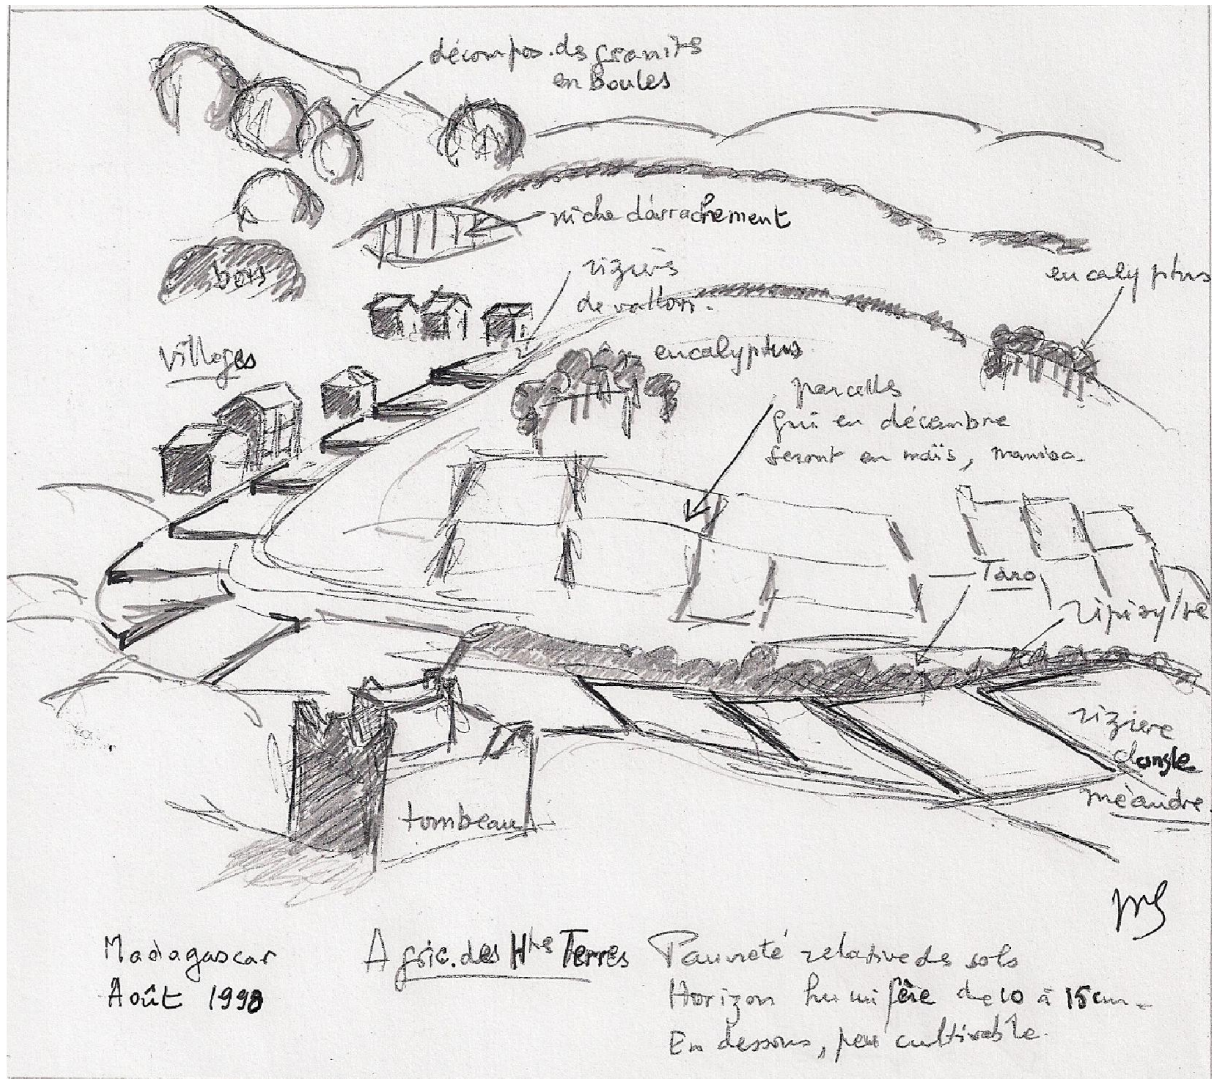 décompos. des granits
en boules
niche d'arrachement
bois
rizières
de vallon.
eucalyptus
villages
eucalyptus
parcelles
qui en décembre
seront en maïs, manioc.
Taro
rizière
d'angle
méandre.
tombeau
Madagascar
Août 1998
Agric. des Htes Terres
Pauvreté relative des sols
Horizon humifère de 10 à 15 cm.
En dessous, peu cultivable.